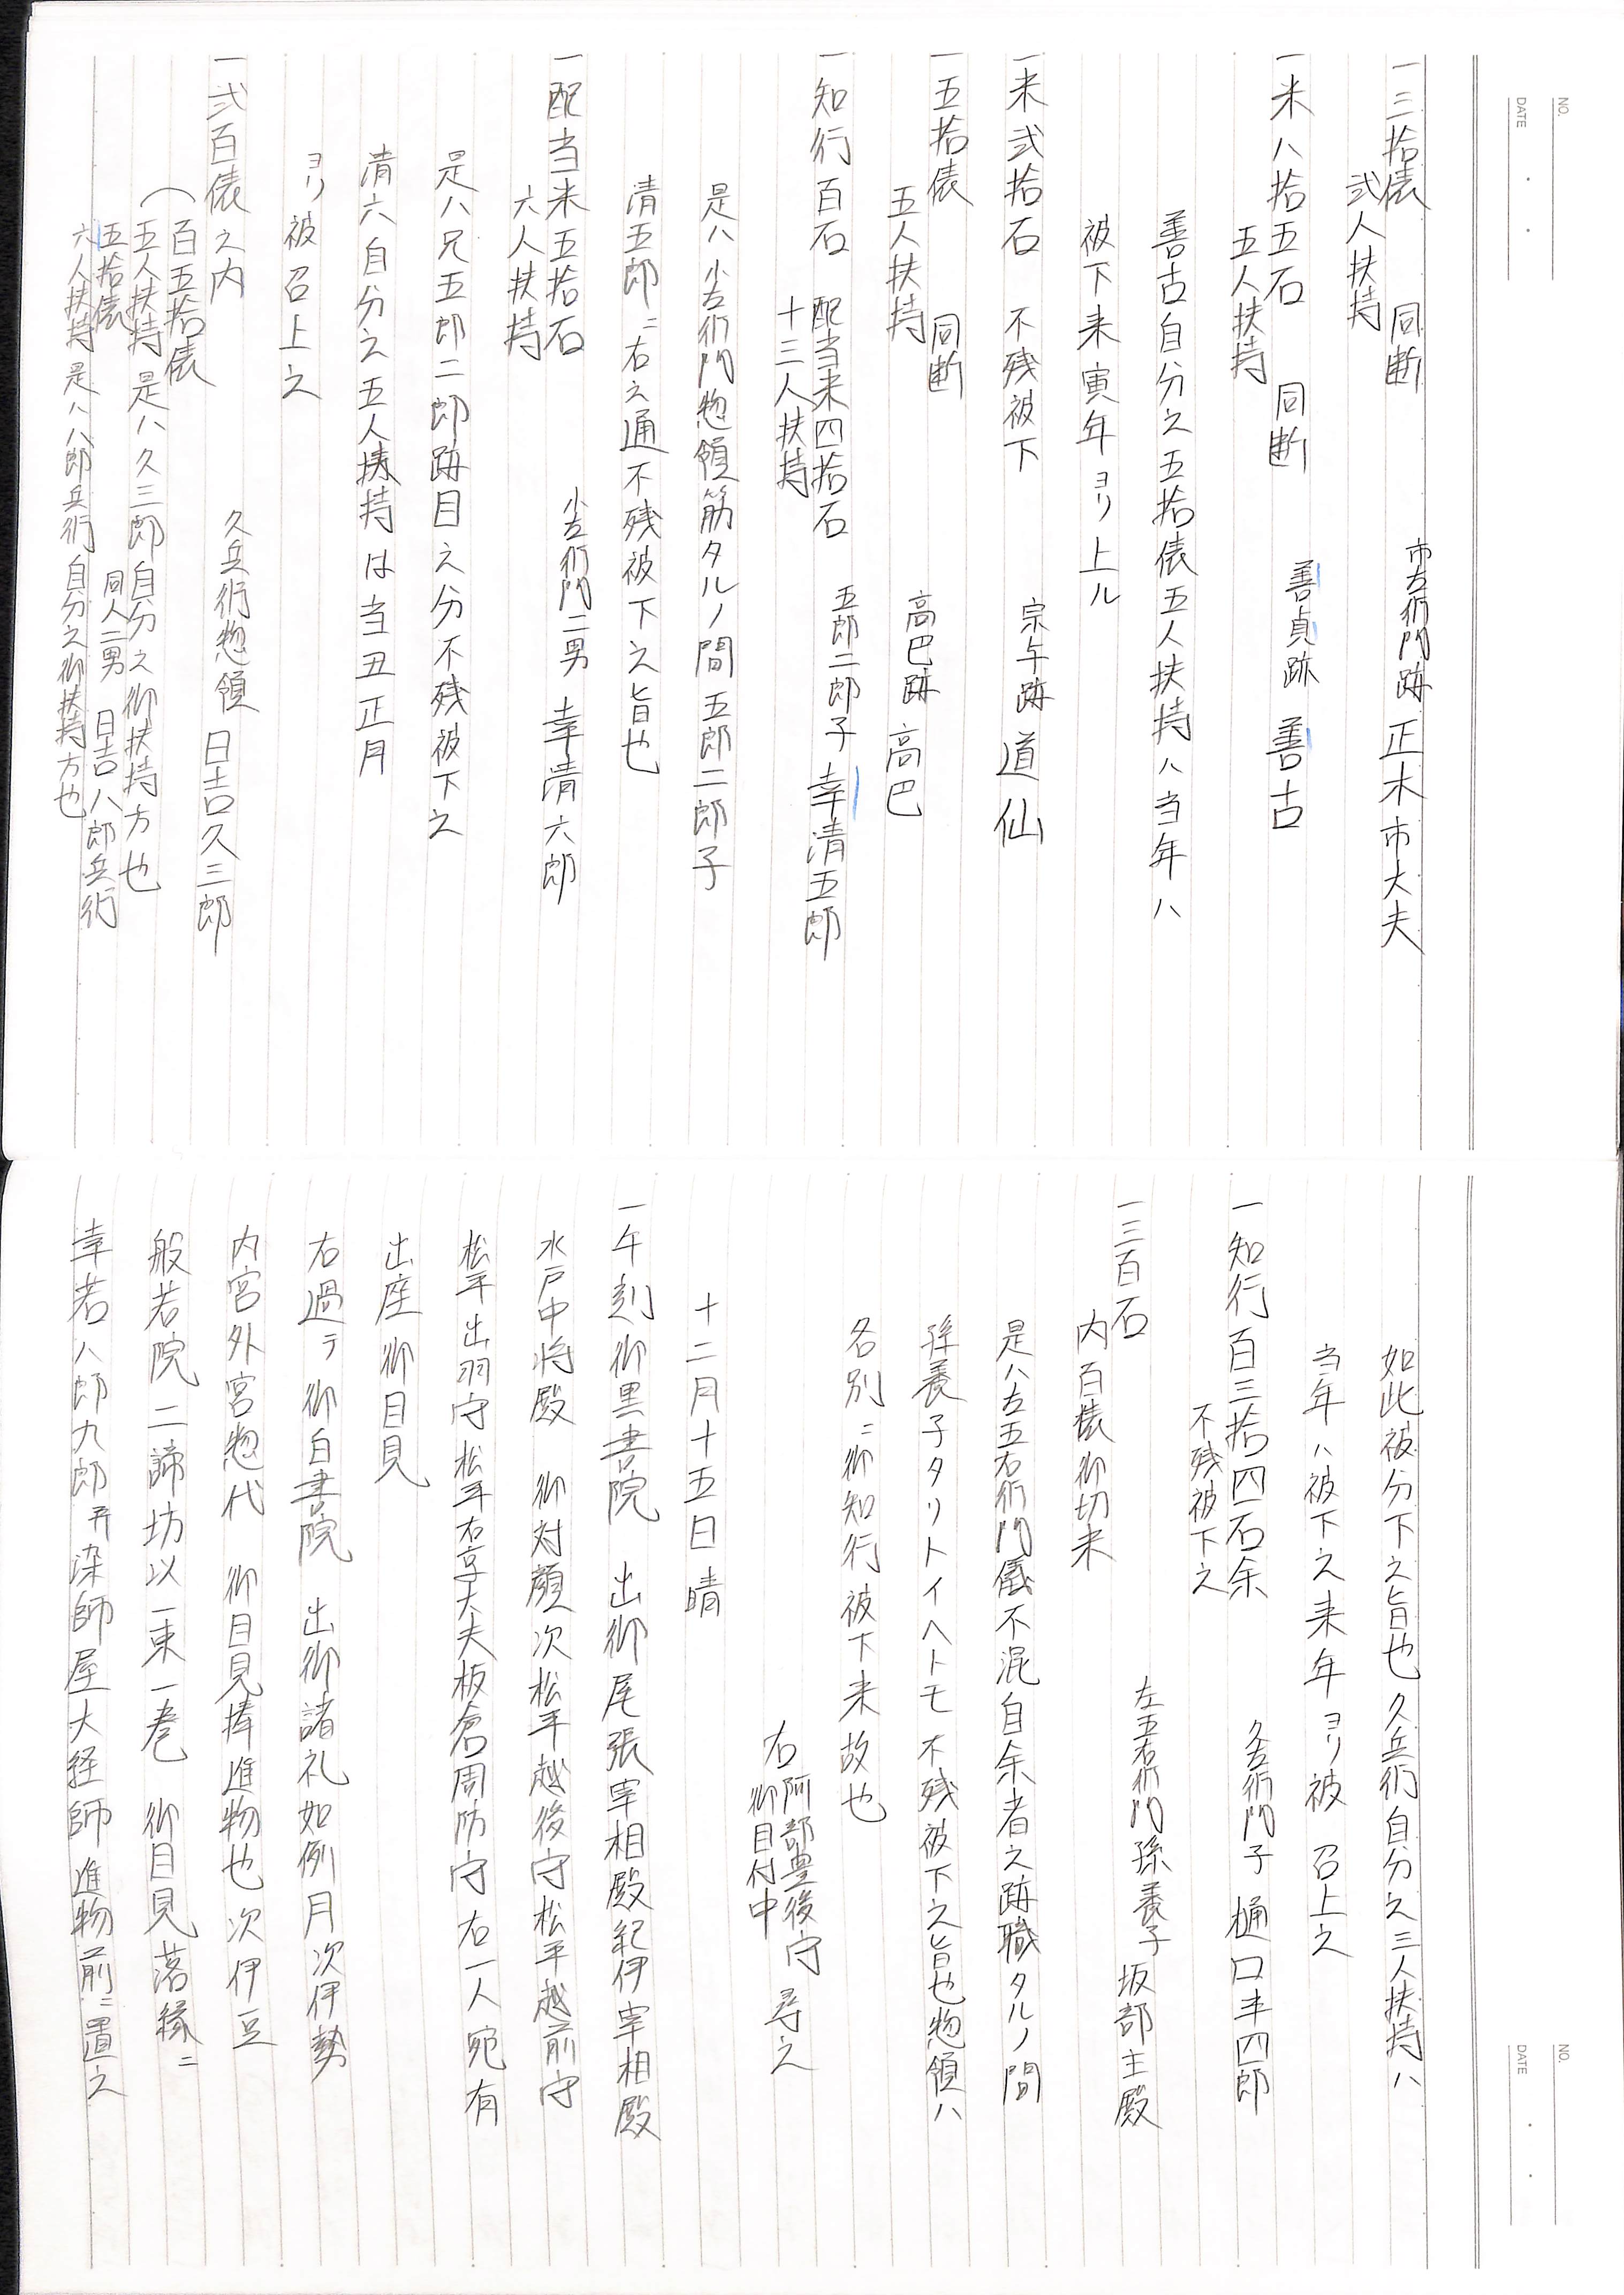 NO.
DATE
一三拾俵 同断 市左衛門跡 正木市大夫
弐人扶持
一米八拾五石 同断 善貞跡 善古
五人扶持
善古自分之五拾俵五人扶持ハ当年ハ
被下来寅年ヨリ上ル
一米弐拾石 不残被下 宗午跡 道仙
一五拾俵 同断 高巴跡 高巴
五人扶持
一知行百石 配当米四拾石 五郎二郎子 幸清五郎
十三人扶持
是ハ小左衛門惣領筋タルノ間五郎二郎子
清五郎ニ右之通不残被下之旨也
一配当米五拾石 小左衛門二男 幸清六郎
六人扶持
是ハ兄五郎二郎跡目之分不残被下之
清六自分之五人扶持は当丑正月
ヨリ被召上之
一弐百俵之内 久兵衛惣領 日吉久三郎
百五拾俵
五人扶持 是ハ久三郎自分之御扶持方也
五拾俵 同人二男 日吉八郎兵衛
六人扶持 是ハ八郎兵衛自分之御扶持方也
NO.
DATE
如此被分下之旨也久兵衛自分之三人扶持ハ
当年ハ被下之来年ヨリ被召上之
一知行百三拾四石余 久左衛門子 樋口半四郎
不残被下之
一三百石 左五右衛門孫養子 坂部主殿
内百俵御切米
是ハ左五右衛門儀不混自余者之跡職タルノ間
孫養子タリトイヘトモ不残被下之旨也惣領ハ
各別ニ御知行被下来故也
右阿部豊後守 尋之
御目付中
十二月十五日晴
一午刻御黒書院 出御尾張宰相殿紀伊宰相殿
水戸中将殿 御対顔次松平越後守松平越前守
松平出羽守松平右京大夫板倉周防守右一人宛有
出座御目見
右過テ御白書院 出御諸礼如例月次伊勢
内宮外宮惣代 御目見捧進物也次伊豆
般若院二諦坊以一束一巻 御目見落縁ニ
幸若八郎九郎并染師屋大経師進物前ニ置之